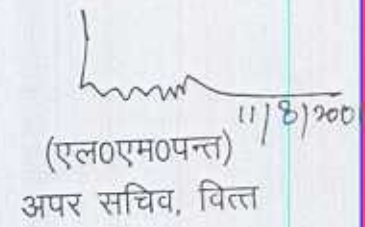 11/8/200
(एल०एम०पन्त)
अपर सचिव, वित्त